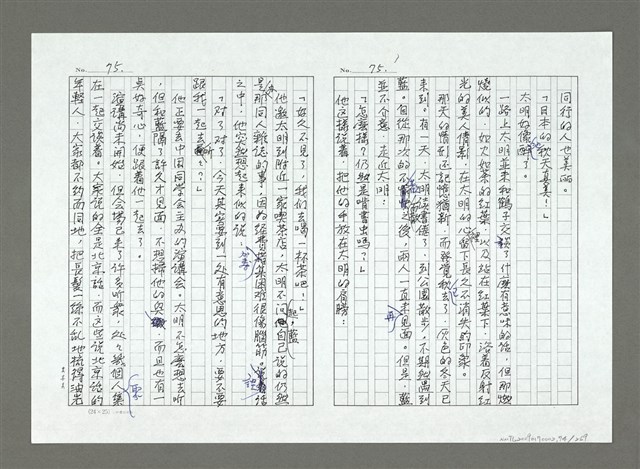 No. 75.
同行的人也美麗。
「日本的秋天真美!」
太明好像
一路上太明並未和鶴子交談了什麼有意味的話,但那燃
燒似的、如火如荼的紅葉,以及站在紅葉下,浴着反射紅
光的美人倩影,在太明的心留下長久不消失的印象。
那天的情形還記憶猶新,而時覺秋去了,灰色的冬天已
來到。有一天,太明讀書倦了,到公園散步,不期然遇到
藍。自從那次的不歡之後,兩人一直未見面。但是,藍
並不介意,走近太明:
「怎麼樣?仍然是啃書虫嗎?」
他這樣說着,把他的手放在太明的肩膀:
No. 75.
「好久不見了,我們去喝一杯茶吧!」
他邀太明到附近一家喫茶店,太明不問自己說的仍然
是那同人雜誌的事。因為經費籌集困難很傷腦筋。談話
之中,他突然想起來似的說:
「對了對了,今天甚麼要到一處有意思的地方,要不要
跟我一起去?」
他正要去中國同學會主办的演講会。太明不怎麼想去听
,但和藍隔了許久才見面,不想掃他的興,而且也有一
點好奇心,便跟着他一起去了。
演講尚未開始,但会場已來了許多听眾,处々幾個人集
在一起交談着。大家說的全是北京話,而这些說北京話的
年輕人,大家都不約而同地,把長髮一絲不乱地梳得油光
(24×25)